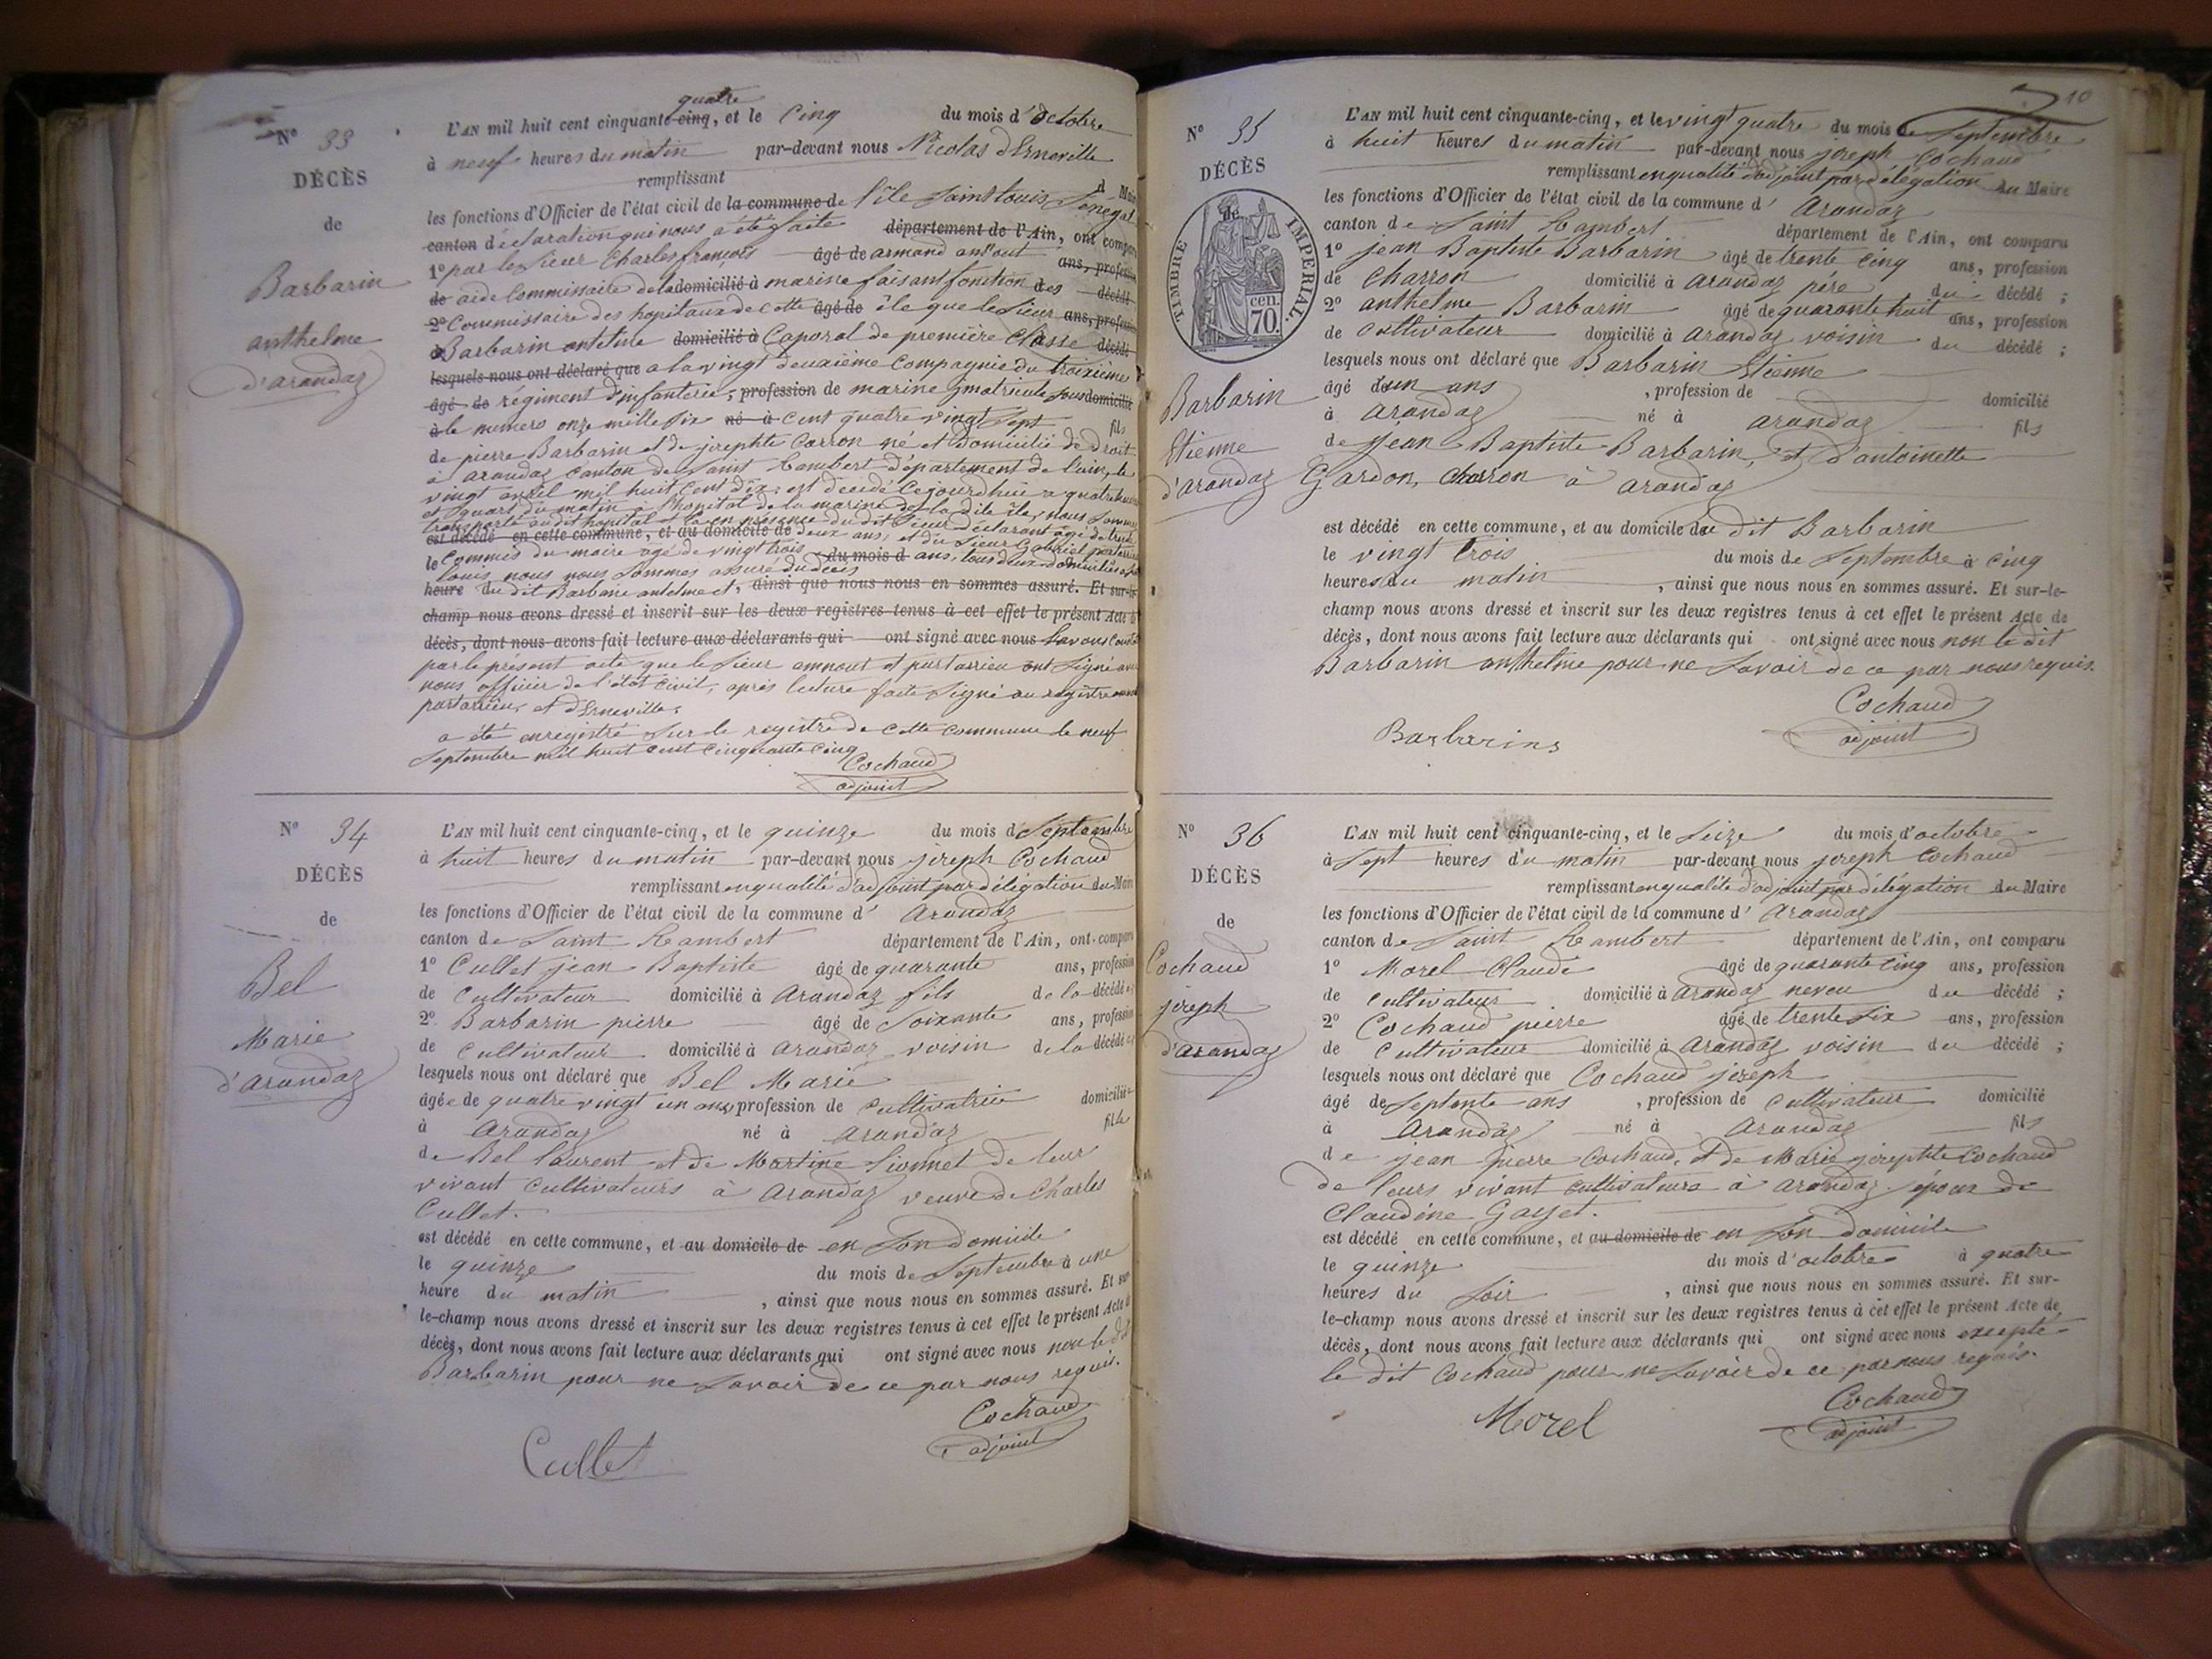 N° 33
DÉCÈS
de
Barbarin
anthelme
d'arandaz
quatre
L'AN mil huit cent cinquante-cinq, et le Cinq du mois d'octobre
à neuf heures du matin par-devant nous Nicolas d'Erneville
remplissant
les fonctions d'Officier de l'état civil de la commune de l'île Saint Louis Sénégal
canton déclaration qui nous a été faite département de l'Ain, ont comparu
1° par le sieur Charles françois âgé de armand ans, profession
de aide Commissaire de la domicilié à marine faisant fonction des décédé
2° Commissaire des hopitaux de cette âgé de île que le Sieur ans, profession
Barbarin antelme domicilié à Caporal de première Classe décédé
lesquels nous ont déclaré que a la vingt deuxième Compagnie du troisième
âgé de régiment d'infanterie, profession de marine matricule sous domicilié
à le numero onze mille six né à cent quatre vingt Sept fils
de pierre Barbarin et de josephte Carron né et domicilié de droit
à arandaz canton de Saint Rambert département de l'ain, le
vingt avril mil huit cent dix: est décédé cejourdhui a quatre heures
et quart du matin à l'hopital de la marine de la dite île, nous sommes
transporté au dit hopital et là en présence du dit Sieur déclarant âgé de trente
est décédé en cette commune, et au domicile de deux ans, et du Sieur Gabriel
le commis du maire agé de vingt trois du mois d ans, tous deux domiciliés
louis nous nous sommes assuré du décès
heure du dit Barbarin antelme et, ainsi que nous nous en sommes assuré. Et sur-le-
champ nous avons dressé et inscrit sur les deux registres tenus à cet effet le présent Acte de
décès, dont nous avons fait lecture aux déclarants qui ont signé avec nous
par le présent acte que le Sieur et partarrieu ont Signé avec
nous officier de l'état civil, après lecture faite Signé au registre
partarrieu, et d'Erneville.
a été enregistré Sur le registre de cette commune le neuf
Septembre mil huit cent cinquante cinq
Cochaud
adjoint
N° 34
DÉCÈS
de
Bel
Marie
d'arandaz
L'AN mil huit cent cinquante-cinq, et le quinze du mois de Septembre
à huit heures du matin par-devant nous joseph Cochaud
remplissant en qualité d'adjoint par délégation du Maire
les fonctions d'Officier de l'état civil de la commune d' Arandaz
canton de Saint Rambert département de l'Ain, ont comparu
1° Cullet jean Baptiste âgé de quarante ans, profession
de Cultivateur domicilié à Arandaz fils de la décédée
2° Barbarin pierre âgé de Soixante ans, profession
de Cultivateur domicilié à Arandaz voisin de la décédée
lesquels nous ont déclaré que Bel Marie
âgée de quatre vingt un ans, profession de Cultivatrice domiciliée
à Arandaz né à Arandaz fille
de Bel laurent et de Martine Sionnet de leur
vivant Cultivateurs à Arandaz veuve de Charles
Cullet.
est décédé en cette commune, et au domicile de en Son domicile
le quinze du mois de Septembre à une
heure du matin, ainsi que nous nous en sommes assuré. Et sur-
le-champ nous avons dressé et inscrit sur les deux registres tenus à cet effet le présent Acte de
décès, dont nous avons fait lecture aux déclarants qui ont signé avec nous non le dit
Barbarin pour ne Savoir de ce par nous requis.
Cochaud
adjoint
Cullet
10
N° 35
DÉCÈS
de
TIMBRE IMPERIAL
cen.
70.
Barbarin
Etienne
d'arandaz
L'AN mil huit cent cinquante-cinq, et le vingt quatre du mois de Septembre
à huit heures du matin par-devant nous joseph Cochaud
remplissant en qualité d'adjoint par délégation du Maire
les fonctions d'Officier de l'état civil de la commune d' Arandaz
canton de Saint Rambert département de l'Ain, ont comparu
1° jean Baptiste Barbarin âgé de trente cinq ans, profession
de Charron domicilié à arandaz père du décédé ;
2° anthelme Barbarin âgé de quarante huit ans, profession
de Cultivateur domicilié à arandaz voisin du décédé ;
lesquels nous ont déclaré que Barbarin Etienne
âgé d'un ans, profession de domicilié
à arandaz né à arandaz fils
de Jean Baptiste Barbarin, et d'antoinette
Gardon, Charron à arandaz
est décédé en cette commune, et au domicile du dit Barbarin
le vingt trois du mois de Septembre à Cinq
heures du matin, ainsi que nous nous en sommes assuré. Et sur-le-
champ nous avons dressé et inscrit sur les deux registres tenus à cet effet le présent Acte de
décès, dont nous avons fait lecture aux déclarants qui ont signé avec nous non le dit
Barbarin anthelme pour ne Savoir de ce par nous requis.
Cochaud
adjoint
Barbarins
N° 36
DÉCÈS
de
Cochaud
joseph
d'arandaz
L'AN mil huit cent cinquante-cinq, et le Seize du mois d'octobre
à Sept heures du matin par-devant nous joseph Cochaud
remplissant en qualité d'adjoint par délégation du Maire
les fonctions d'Officier de l'état civil de la commune d' Arandaz
canton de Saint Rambert département de l'Ain, ont comparu
1° Morel Claude âgé de quarante cinq ans, profession
de Cultivateur domicilié à Arandaz neveu du décédé ;
2° Cochaud pierre âgé de trente Six ans, profession
de Cultivateur domicilié à Arandaz voisin du décédé ;
lesquels nous ont déclaré que Cochaud joseph
âgé de Septente ans, profession de Cultivateur domicilié
à Arandaz né à Arandaz fils
de jean pierre Cochaud, et de Marie josephte Cochaud
de leurs vivant Cultivateurs à arandaz. époux de
Claudine Gayet.
est décédé en cette commune, et au domicile de en Son domicile
le quinze du mois d'octobre à quatre
heures du Soir, ainsi que nous nous en sommes assuré. Et sur-
le-champ nous avons dressé et inscrit sur les deux registres tenus à cet effet le présent Acte de
décès, dont nous avons fait lecture aux déclarants qui ont signé avec nous excepté
le dit Cochaud pour ne Savoir de ce par nous requis.
Cochaud
adjoint
Morel